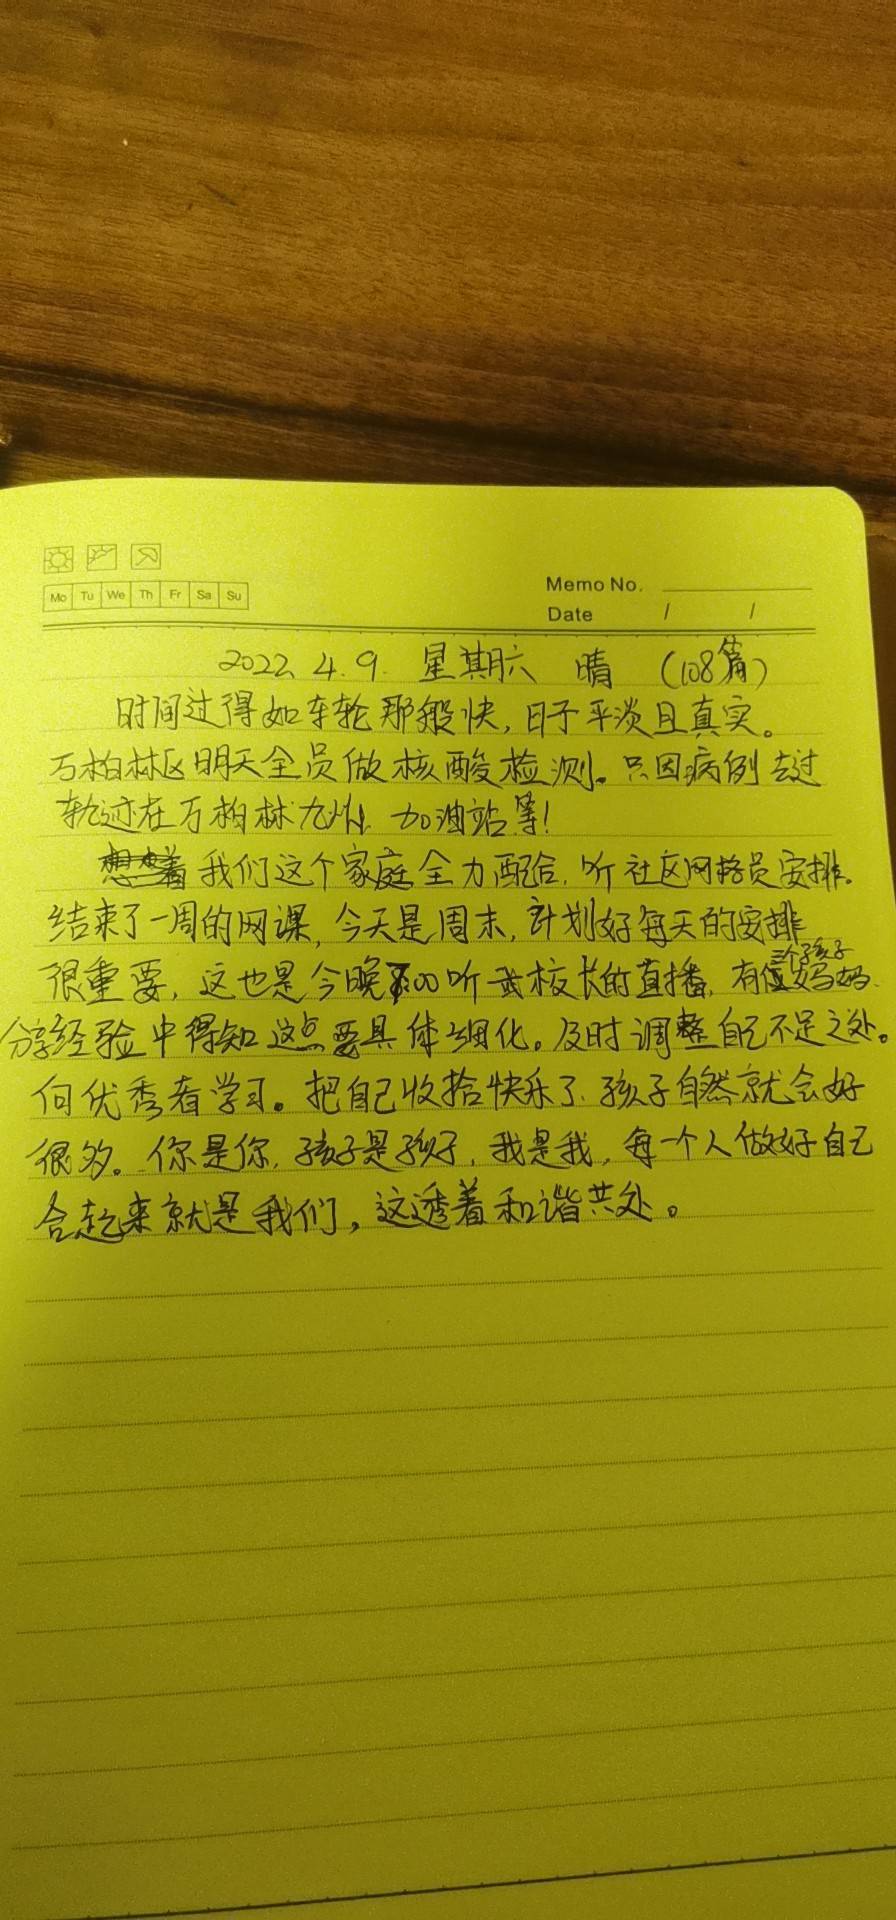 Mo Tu We Th Fr Sa Su
Memo No.
Date / /
2022.4.9. 星期六 晴 (108篇)
时间过得如车轮那般快,日子平淡且真实。
万柏林区明天全员做核酸检测。只因病例去过
轨迹在万柏林九州加油站等!
我们这个家庭全力配合,听社区网格员安排。
结束了一周的网课,今天是周末,计划好每天的安排
很重要,这也是今晚:00听武校长的直播,有位三个孩子妈妈
分享经验中得知这点要具体细化。及时调整自己不足之处。
向优秀者学习。把自己收拾快乐了,孩子自然就会好
很多。你是你,孩子是孩子,我是我,每一个人做好自己
合起来就是我们,这透着和谐共处。